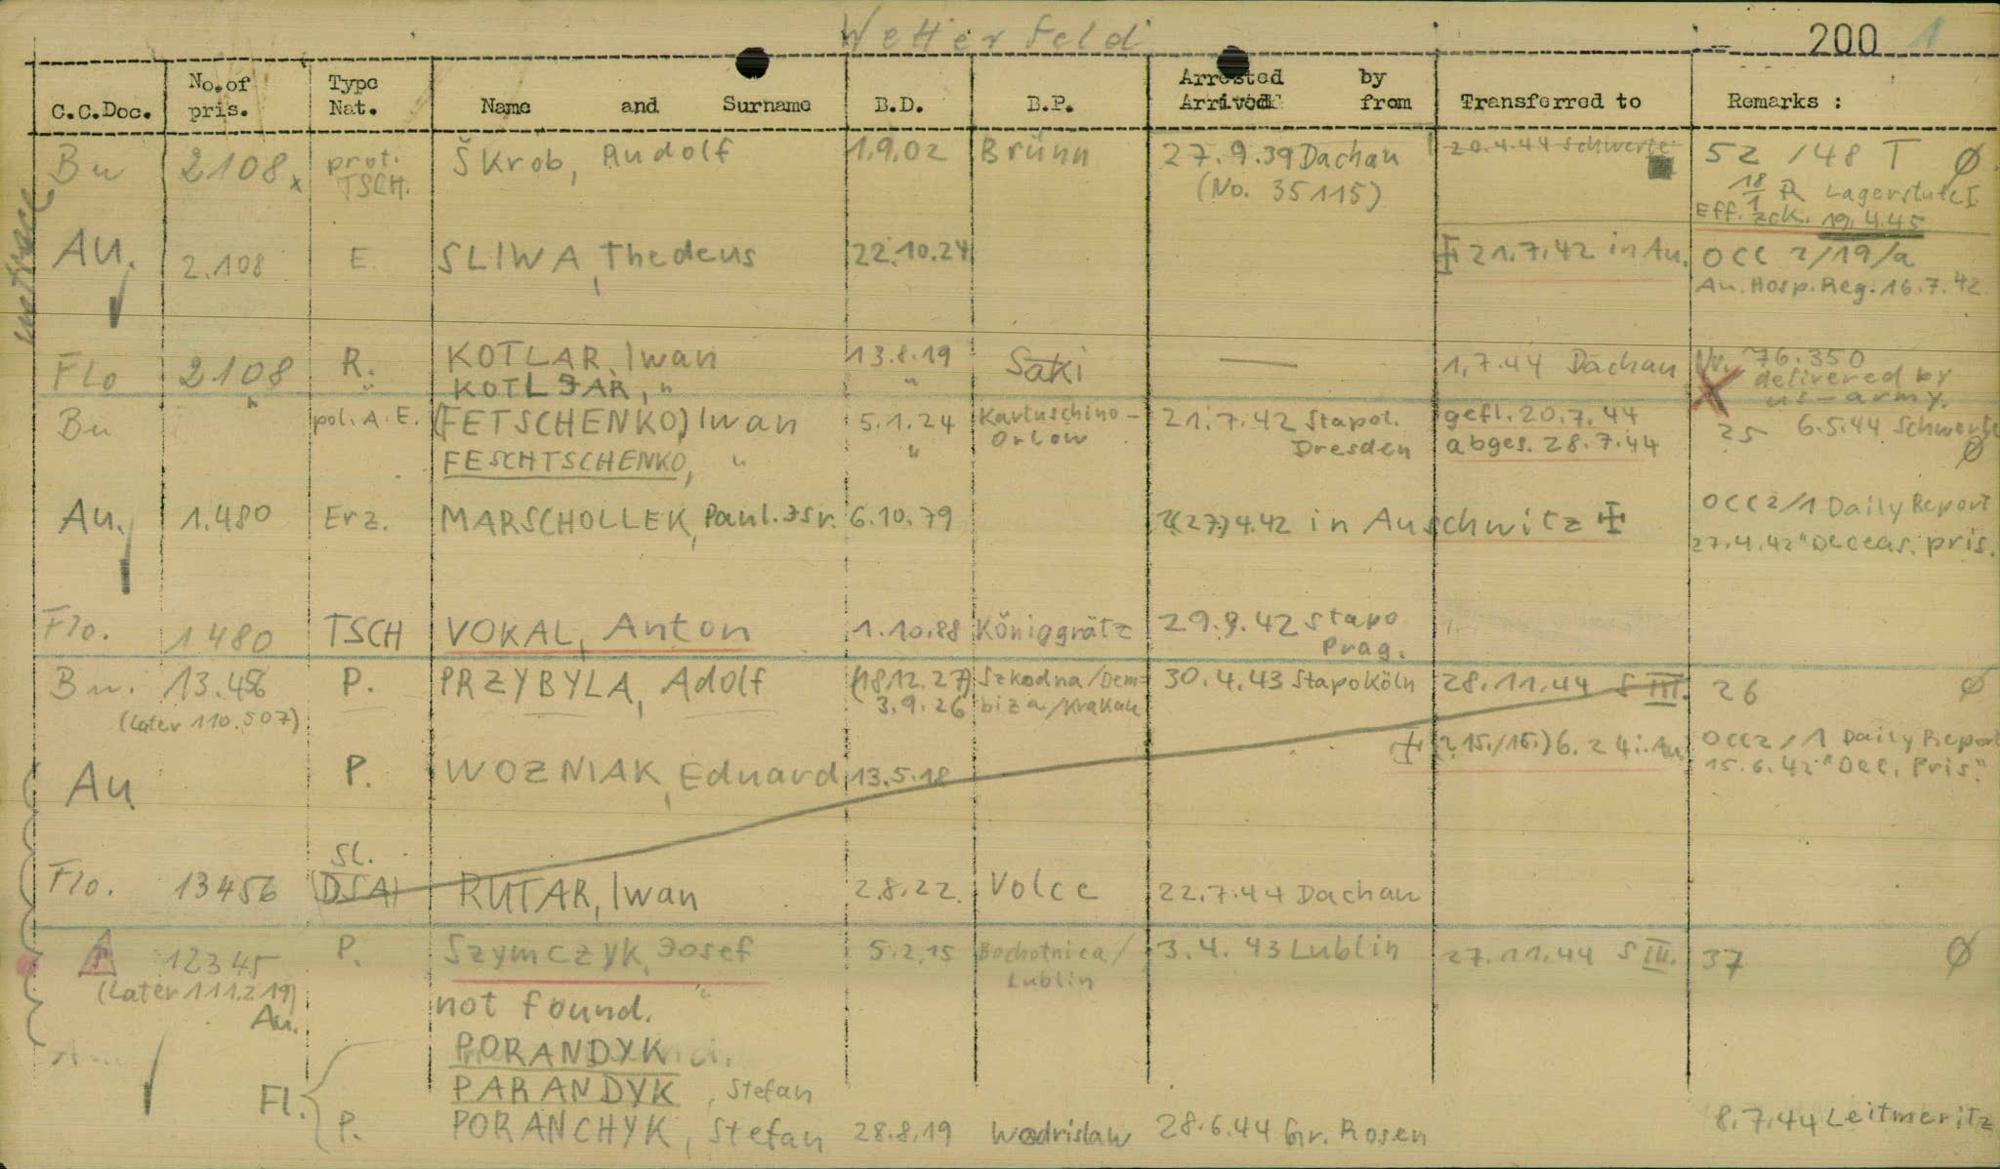 Wetterfeld 200 1
C.C.Doc. No. of pris. Type Nat. Name and Surname B.D. B.P. Arrested by Arrived from Transferred to Remarks :
Bu 2108x prot. TSCH. Škrob, Rudolf 1.9.02 Brünn 27.9.39 Dachau 20.4.44 Schwerte 52 /48 T Ø
(No. 35115) 18/1 R Lagerstufe I
Eff. zck. 19.4.45
Au. 2.108 E SLIWA, Thedeus 22.10.24 21.7.42 in Au. OCC 2/19/a
Au. Hosp. Reg. 16.7.42
Flo 2108 R. KOTLAR, Iwan 13.8.19 Saki — 1.7.44 Dachau Nr. 76.350
" " KOTLJAR, " " delivered by
us-army.
Bu pol. A.E. (FETSCHENKO) Iwan 5.1.24 Kartuschino- 21.7.42 Stapol. gefl. 20.7.44 25 6.5.44 Schwerte
FESCHTSCHENKO, " " Orlow Dresden abges. 28.7.44 Ø
Au. 1.480 Erz. MARSCHOLLEK, Paul. Isr. 6.10.79 (27.)4.42 in Auschwitz OCC2/1 Daily Report
27.4.42 "Deceas. pris.
Flo. 1480 TSCH VOKAL, Anton 1.10.88 Königgrätz 29.9.42 Stapo
Prag.
Bu. 13.456 P. PRZYBYLA, Adolf (18.12.27) Szkodna/Dem= 30.4.43 Stapo Köln 28.11.44 S III. 26 Ø
(later 110.507) 3.9.26 biza/Krakau
Au P. WOZNIAK, Eduard 13.5.18 (? 15./16.)6.24 i. Au. OCC2/1 Daily Report
15.6.42 "Dec. Pris."
Sl.
Flo. 13456 (DSA) RUTAR, Iwan 2.8.22. Volce 22.7.44 Dachau
12345 P. Szymczyk, Josef 5.2.15 Bochotnica/ 3.4.43 Lublin 27.11.44 S III. 37 Ø
(later 111.219) Lublin
Au. not found.
PORANDYK
Fl. { PARANDYK, Stefan
P. PORANCHYK, Stefan 28.8.19 Wodrislaw 28.6.44 Gr. Rosen 8.7.44 Leitmeritz